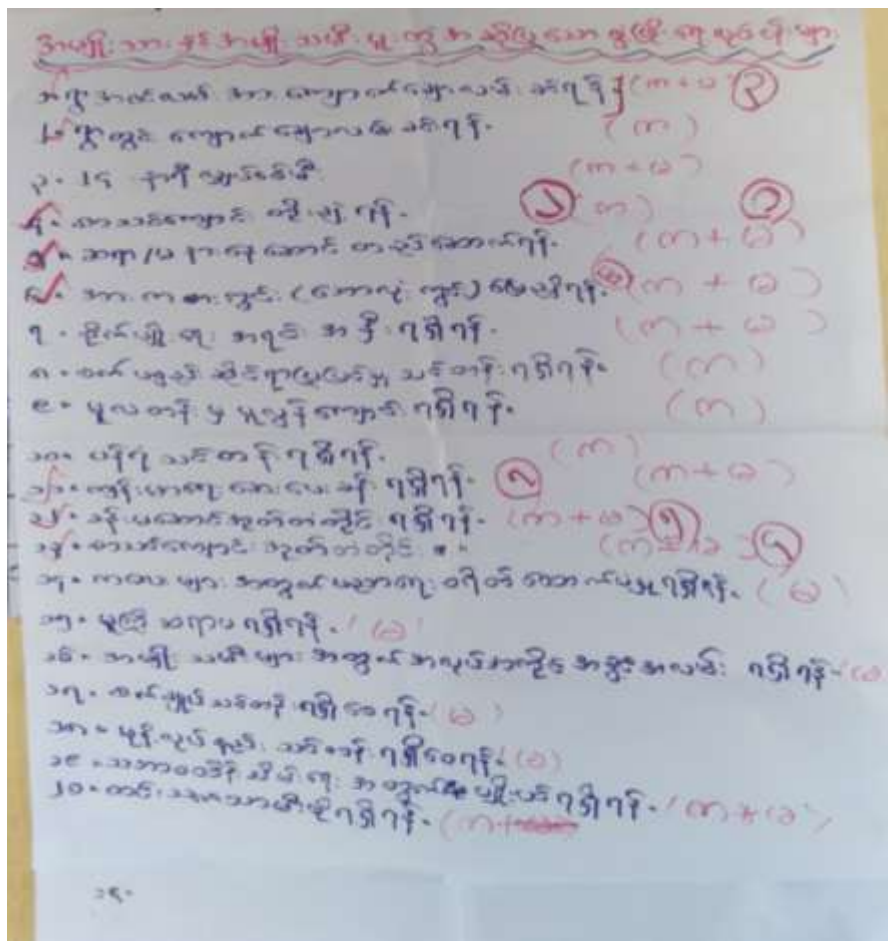 အမျိုးသား နှင့် အမျိုးသမီး ပူးတွဲ အဆိုပြုသော ဖွံ့ဖြိုးရေး လုပ်ငန်းများ
၁။ ရွာအဝင်လမ်းအား ကျောက်ချောလမ်းခင်းရန် (က+မ) ၃
၂။ ရွာတွင်း ကျောက်ချောလမ်းခင်းရန်။ (က)
၃။ ၂၄ နာရီ လျှပ်စစ်မီး (က+မ)
၄။ စာသင်ကျောင်း တိုးချဲ့ရန်။ ၁ (က) ၁
၅။ ဆရာ/မ နားနေဆောင် တည်ဆောက်ရန်။ (က+မ)
၆။ အားကစားကွင်း (ဘောလုံးကွင်း) မြေညှိရန်။ (က+မ)
၇။ စိုက်ပျိုးရေး အရင်းအနှီး ရရှိရန်။ (က+မ)
၈။ စက်ပစ္စည်း ဆိုင်ရာပြုပြင်မှု သင်တန်း ရရှိရန်။ (က)
၉။ မူလတန်းမှ မူလွန်ကျောင်း ရရှိရန်။ (က)
၁၀။ ပန်းရံ သင်တန်း ရရှိရန်။ (က)
၁၁။ ကျန်းမာရေး ဆေးပေးခန်း ရရှိရန်။ ၅ (က+မ)
၁၂။ ခန်းမဆောင် အုတ်တံတိုင်း ရရှိရန်။ (က+မ)
၁၃။ စာသင်ကျောင်း အုတ်တံတိုင်း (က+မ) ၄
၁၄။ ကလေးများ အတွက် ပညာရေး ထောက်ပံ့မှု ရရှိရန်။ (မ)
၁၅။ မူကြိုဆရာမ ရရှိရန်။ (မ)
၁၆။ အမျိုးသမီးများ အတွက် အလုပ်အကိုင် အခွင့်အလမ်း ရရှိရန်။ (မ)
၁၇။ စက်ချုပ်သင်တန်း ရရှိစေရန်။ (မ)
၁၈။ မုန့်လုပ်နည်း သင်တန်း ရရှိစေရန်။ (မ)
၁၉။ သဘာဝထိန်းသိမ်းရေး အတွက် ပျိုးပင် ရရှိရန်။ (က+မ)
၂၀။ ရရှိရန်။ (က
၁၄။